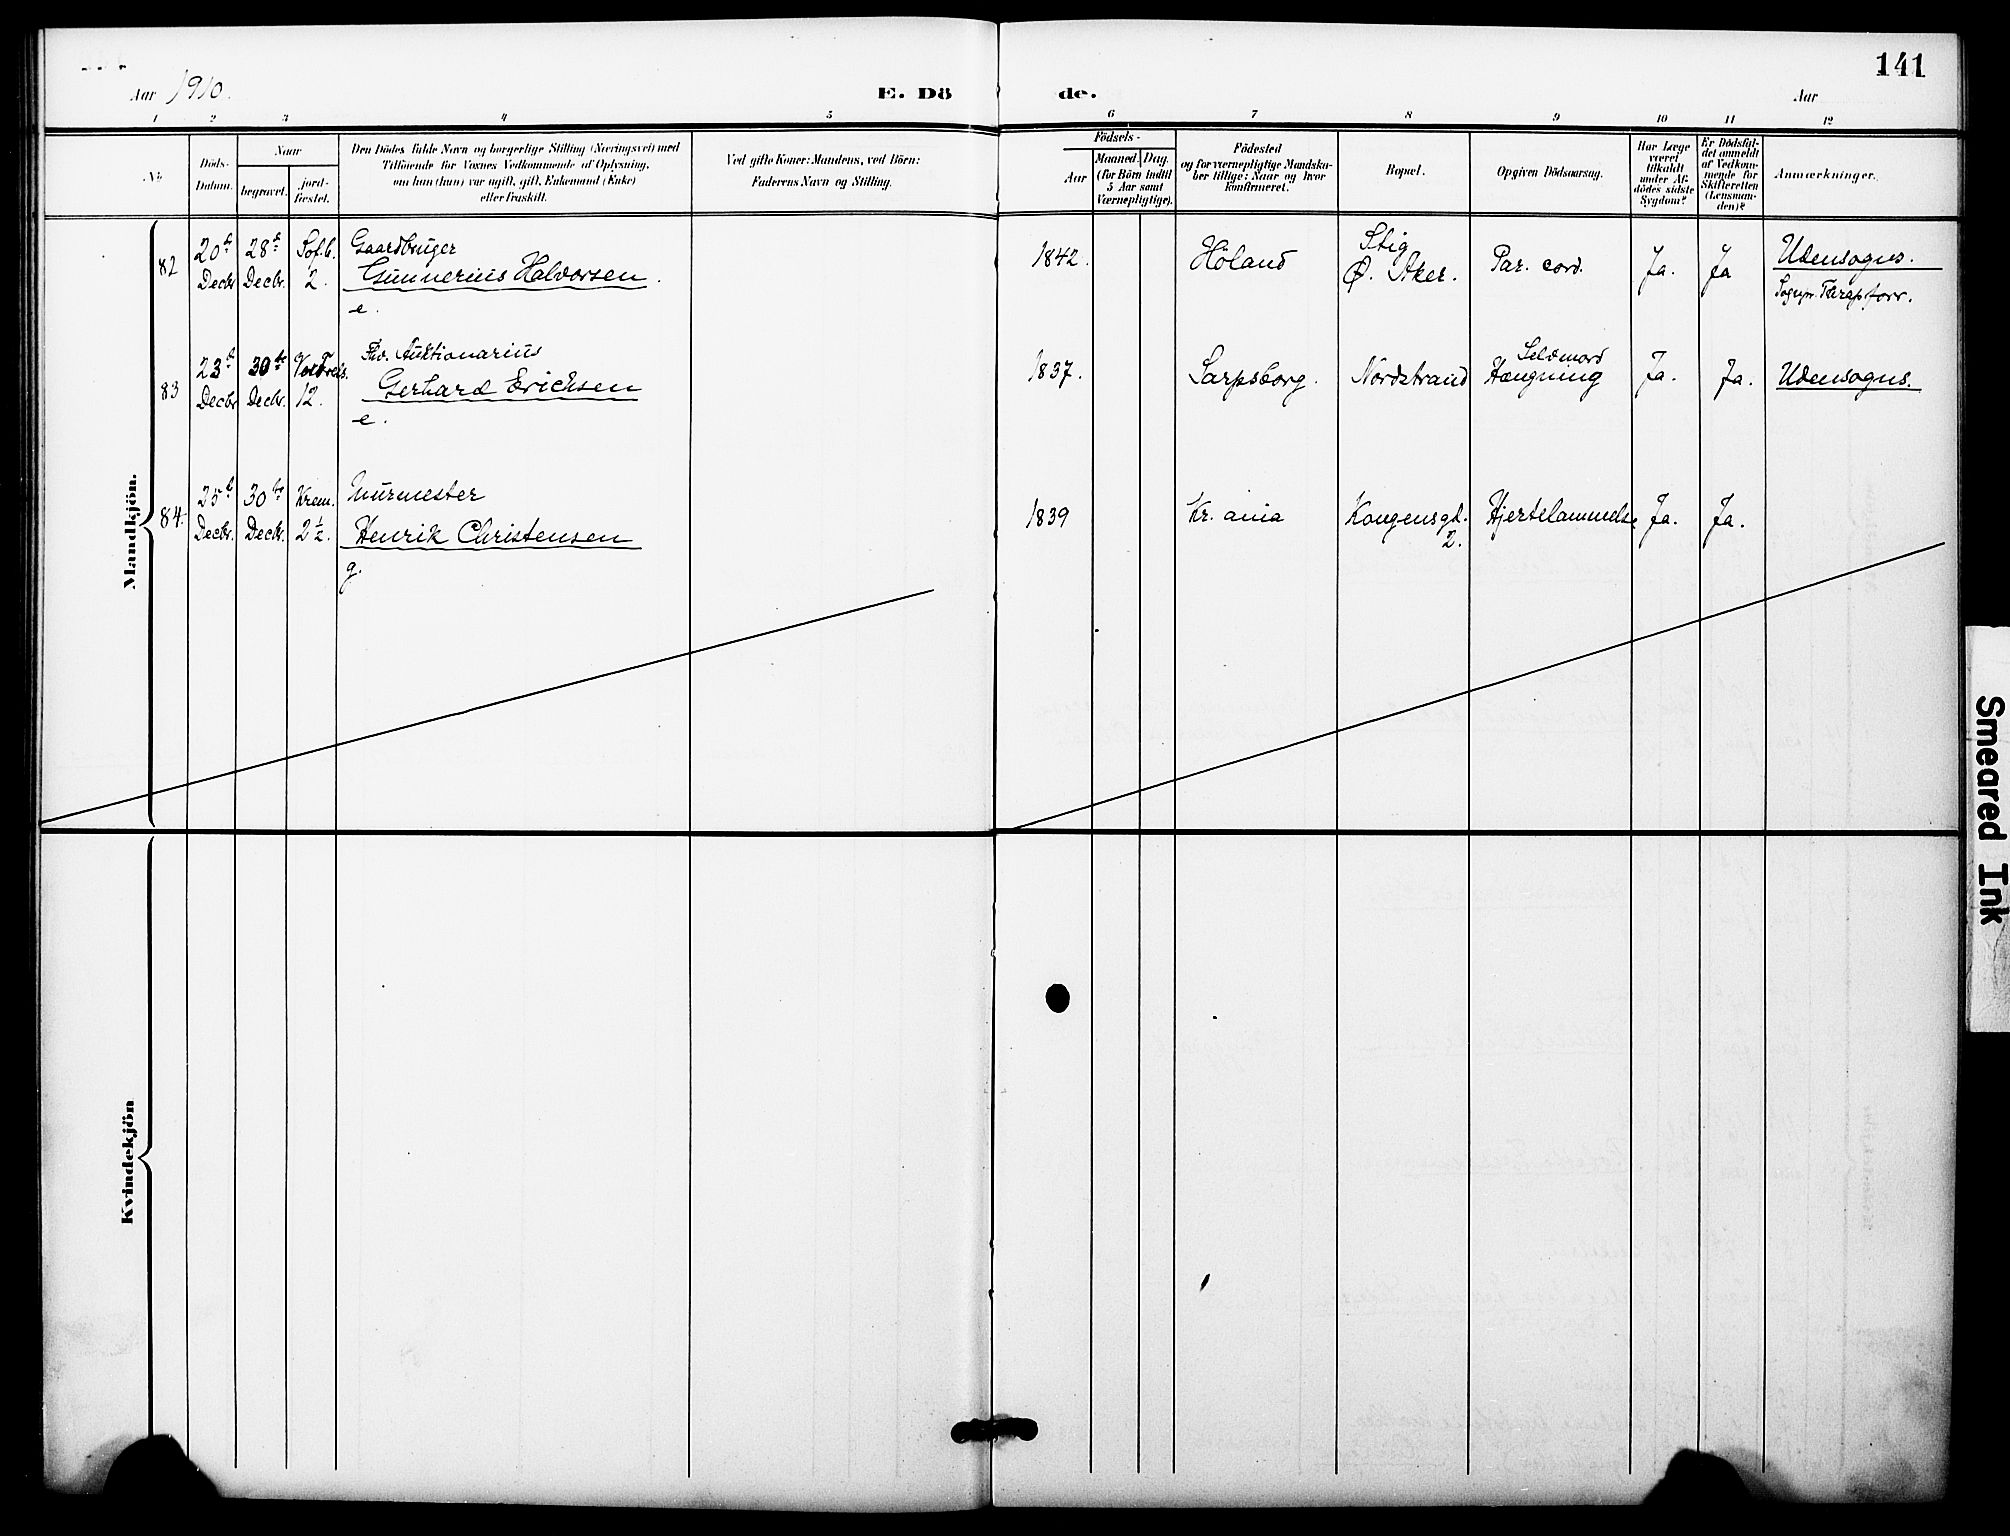 141
Aar 1910.
E. Dö
de.
Aar
1 2 3 4 5 6 7 8 9 10 11 12
No
Döds-
Datum.
Naar
begravet.
jord-
fæstet.
Den Dödes fulde Navn og borgerlige Stilling (Næringsvei) med
Tilföiende for Voxnes Vedkommende af Oplysning,
om han (hun) var ugift, gift, Enkemand (Enke)
eller fraskilt.
Ved gifte Koner: Mandens, ved Börn:
Faderens Navn og Stilling.
Födsels-
Aar
Maaned. Dag.
(for Börn indtil
5 Aar samt
Værnepligtige).
Födested
og for værnepligtige Mandska-
ber tillige: Naar og hvor
konfirmeret.
Bopæl.
Opgiven Dödsaarsag.
Har Læge
været
tilkaldt
under Af-
dödes sidste
Sygdom?
Er Dödsfal-
det anmeldt
af Vedkom-
mende for
Skifteretten
(Lensman-
den)?
Anmærkninger.
Mandkjön.
82
20de
Decbr
28de
Decbr.
Sof.b.
2.
Gaardbruger
Gunnerius Halvorsen.
e.
1842.
Höland
Stig
Ø. Aker.
Par. cord.
Ja.
Ja
Udensogns.
Torapforr.
83
23de
Decbr
30te
Decbr.
12.
Fhv. Auktionarius
Gerhard Erichsen
e.
1837.
Sarpsborg.
Nordstrand
Selvmord
Hængning
Ja.
Ja.
Udensogns.
84.
25de
Decbr.
30te
Decbr.
Krem.
2½.
Murmester
Henrik Christensen
g.
1839
Kr.ania
Kongensgd.
2.
Hjertelammelse
Ja.
Ja.
Kvindekjön
Smeared Ink